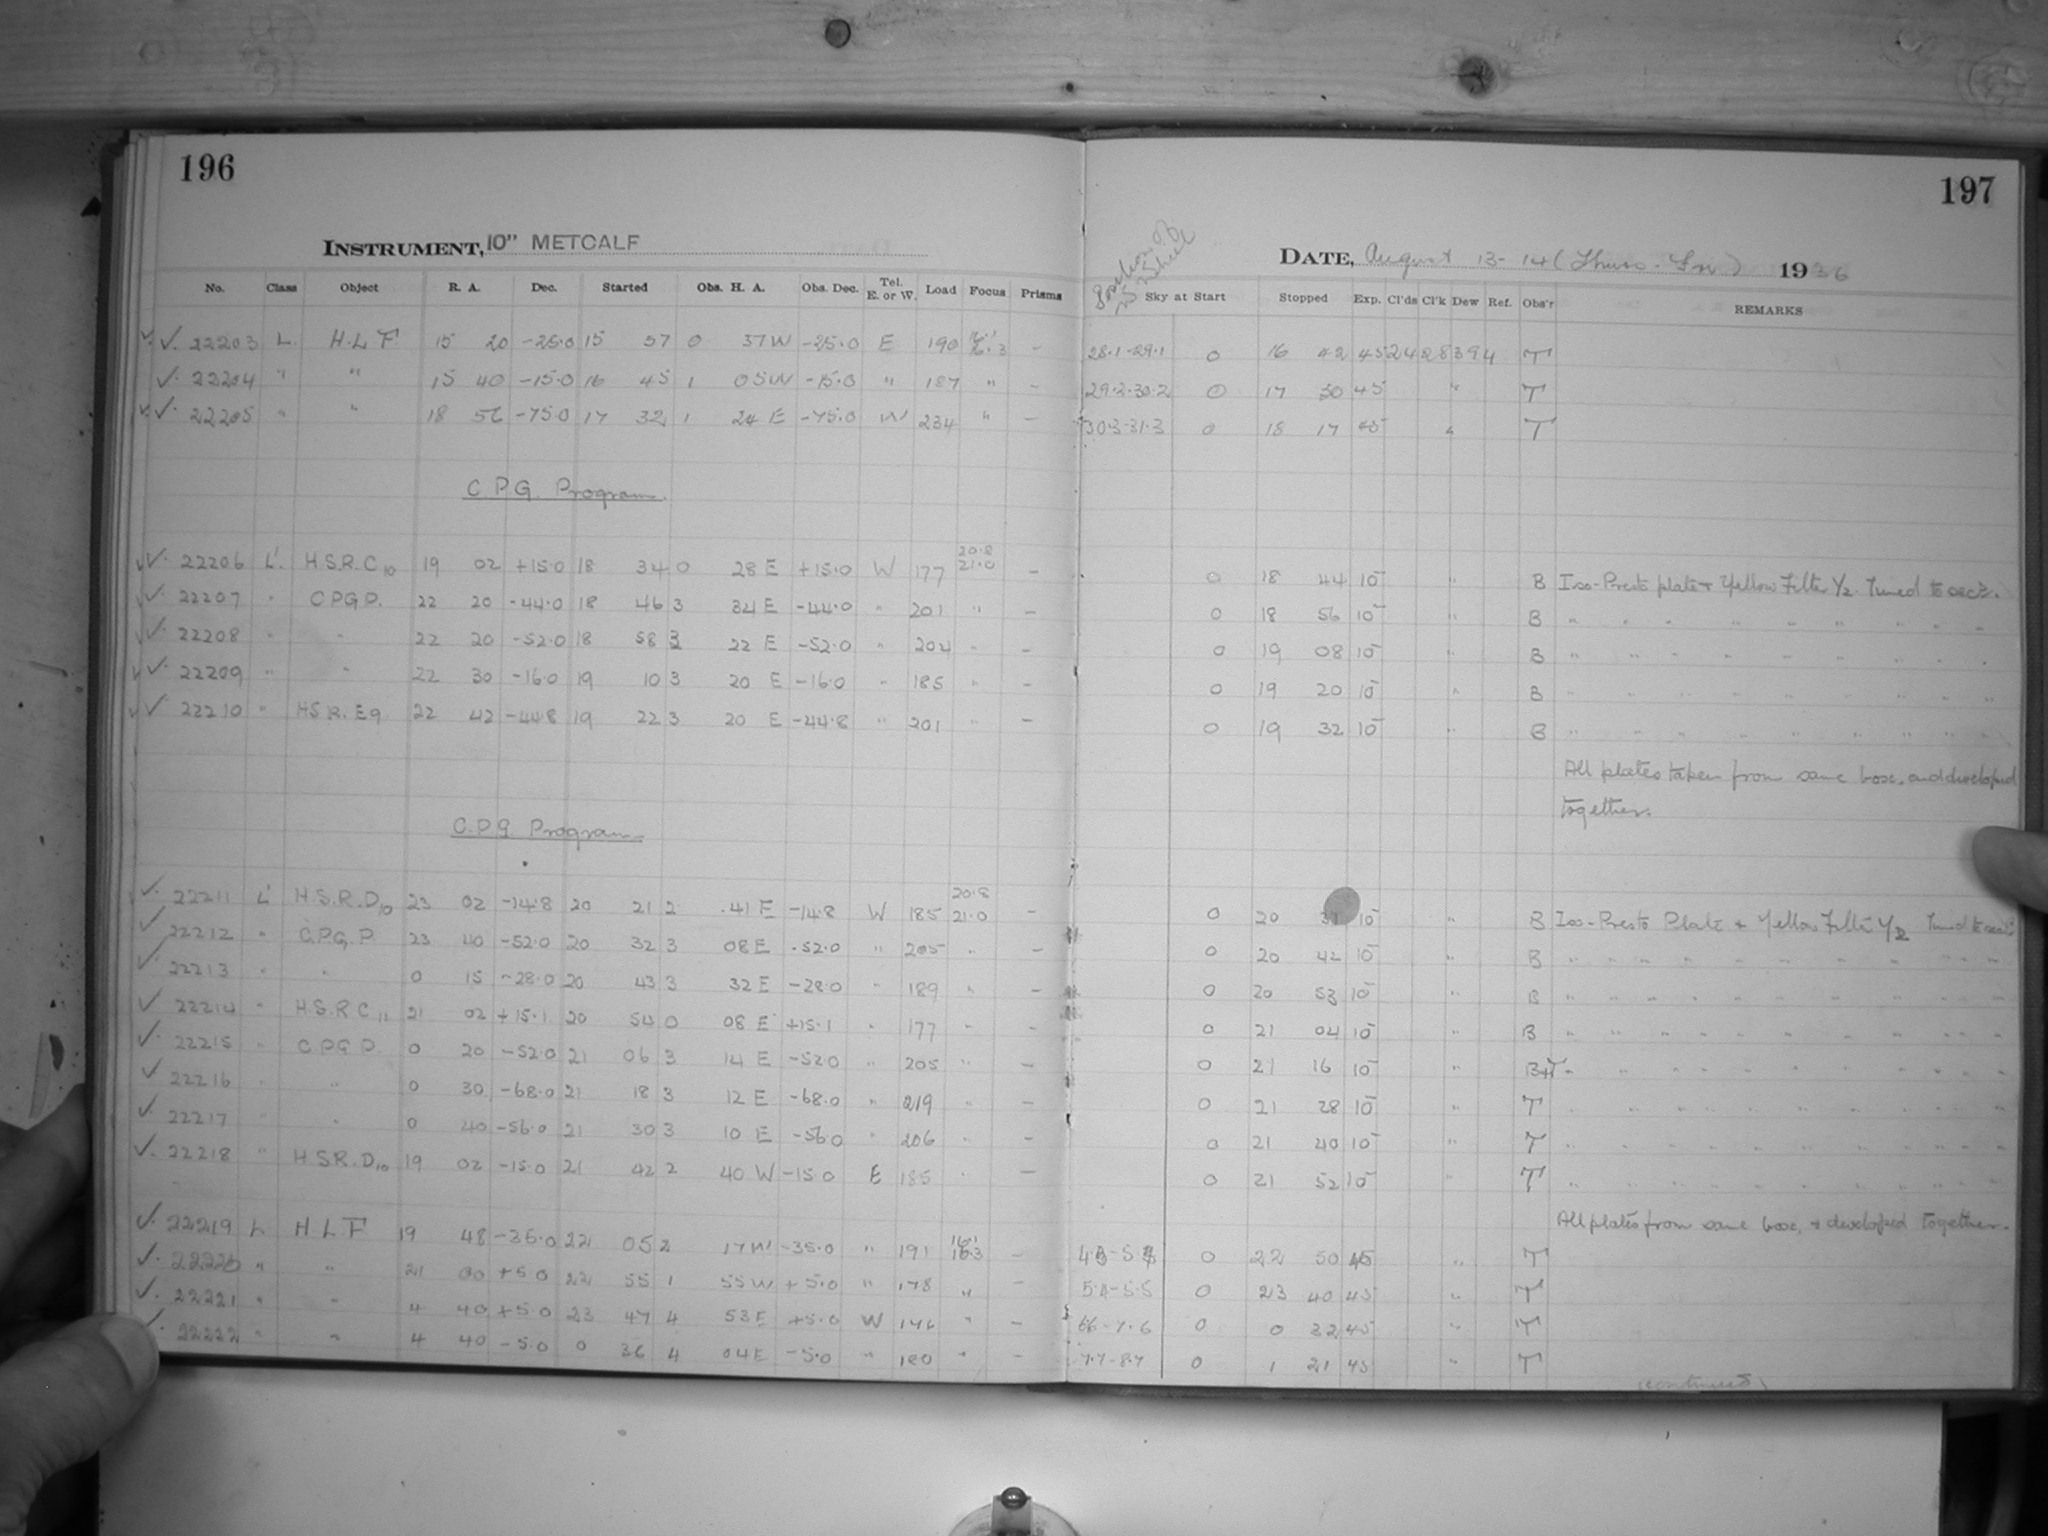 196
197
INSTRUMENT, 10" METCALF
DATE, August 13-14 (Thurs-Fri) 1936
No. Class Object R. A. Dec. Started Obs. H. A. Obs. Dec. Tel. E. or W. Load Focus Prisms Sky at Start Stopped Exp. Cl'ds Cl'k Dew Ref. Obs'r REMARKS
✓ 22203 L H.L.F 15 20 -25.0 15 57 0 37 W -25.0 E 190 16.1 16.3 - 28.1-29.1 0 16 42 45 T
✓ 22204 " " 15 40 -15.0 16 45 1 05 W -15.0 " 187 " - 29.2-30.2 0 17 30 45 " T
✓ 22205 " " 18 56 -75.0 17 32 1 24 E -75.0 W 234 " - 30.3-31.3 0 18 17 45 " T
C.P.G. Program.
✓ 22206 L' H.S.R.C10 19 02 +15.0 18 34 0 28 E +15.0 W 177 20.8 21.0 - 0 18 44 10 " B Iso-Presto plate + Yellow Filter Y2. Tuned to
✓ 22207 " C.P.G.P. 22 20 -44.0 18 46 3 34 E -44.0 " 201 " - 0 18 56 10 " B " " " " " " " " "
✓ 22208 " " 22 20 -52.0 18 58 3 22 E -52.0 " 204 " - 0 19 08 10 " B " " " " " " " " "
✓ 22209 " " 22 30 -16.0 19 10 3 20 E -16.0 " 185 " - 0 19 20 10 " B " " " " " " " " "
✓ 22210 " H.S.R.E9 22 42 -44.8 19 22 3 20 E -44.8 " 201 " - 0 19 32 10 " B " " " " " " " " "
All plates taken from same box, and developed
together.
C.P.G Program
✓ 22211 L' H.S.R.D10 23 02 -14.8 20 21 2 41 E -14.8 W 185 20.8 21.0 - 0 20 31 10 " B Iso-Presto Plate + Yellow Filter Y2 Tuned to
✓ 22212 " C.P.G.P 23 40 -52.0 20 32 3 08 E -52.0 " 205 " - 0 20 42 10 " B " " " " " " " " "
✓ 22213 " " 0 15 -28.0 20 43 3 32 E -28.0 " 189 " - 0 20 53 10 " B " " " " " " " " "
✓ 22214 " H.S.R C11 21 02 +15.1 20 54 0 08 E +15.1 " 177 " - 0 21 04 10 " B " " " " " " " " "
✓ 22215 " C.P.G P. 0 20 -52.0 21 06 3 14 E -52.0 " 205 " - 0 21 16 10 " B+T " " " " " " " " "
✓ 22216 " " 0 30 -68.0 21 18 3 12 E -68.0 " 219 " - 0 21 28 10 " T " " " " " " " " "
✓ 22217 " " 0 40 -56.0 21 30 3 10 E -56.0 " 206 " - 0 21 40 10 " T " " " " " " " " "
✓ 22218 " H.S.R.D10 19 02 -15.0 21 42 2 40 W -15.0 E 185 " - 0 21 52 10 " T " " " " " " " " "
All plates from same box, + developed together.
✓ 22219 L H L F 19 48 -35.0 22 05 2 17 W -35.0 " 191 16.1 16.3 - 0 22 50 45 " T
✓ 22220 " " 21 00 +5.0 22 55 1 55 W +5.0 " 178 " - 0 23 40 45 " T
✓ 22221 " " 4 40 +5.0 23 47 4 53 E +5.0 W " - 6.6-7.6 0 0 32 45 " T
✓ 22222 " " 4 40 -5.0 0 36 4 04 E -5.0 " 180 " - 7.7-8.7 0 1 21 45 " T
(continued)